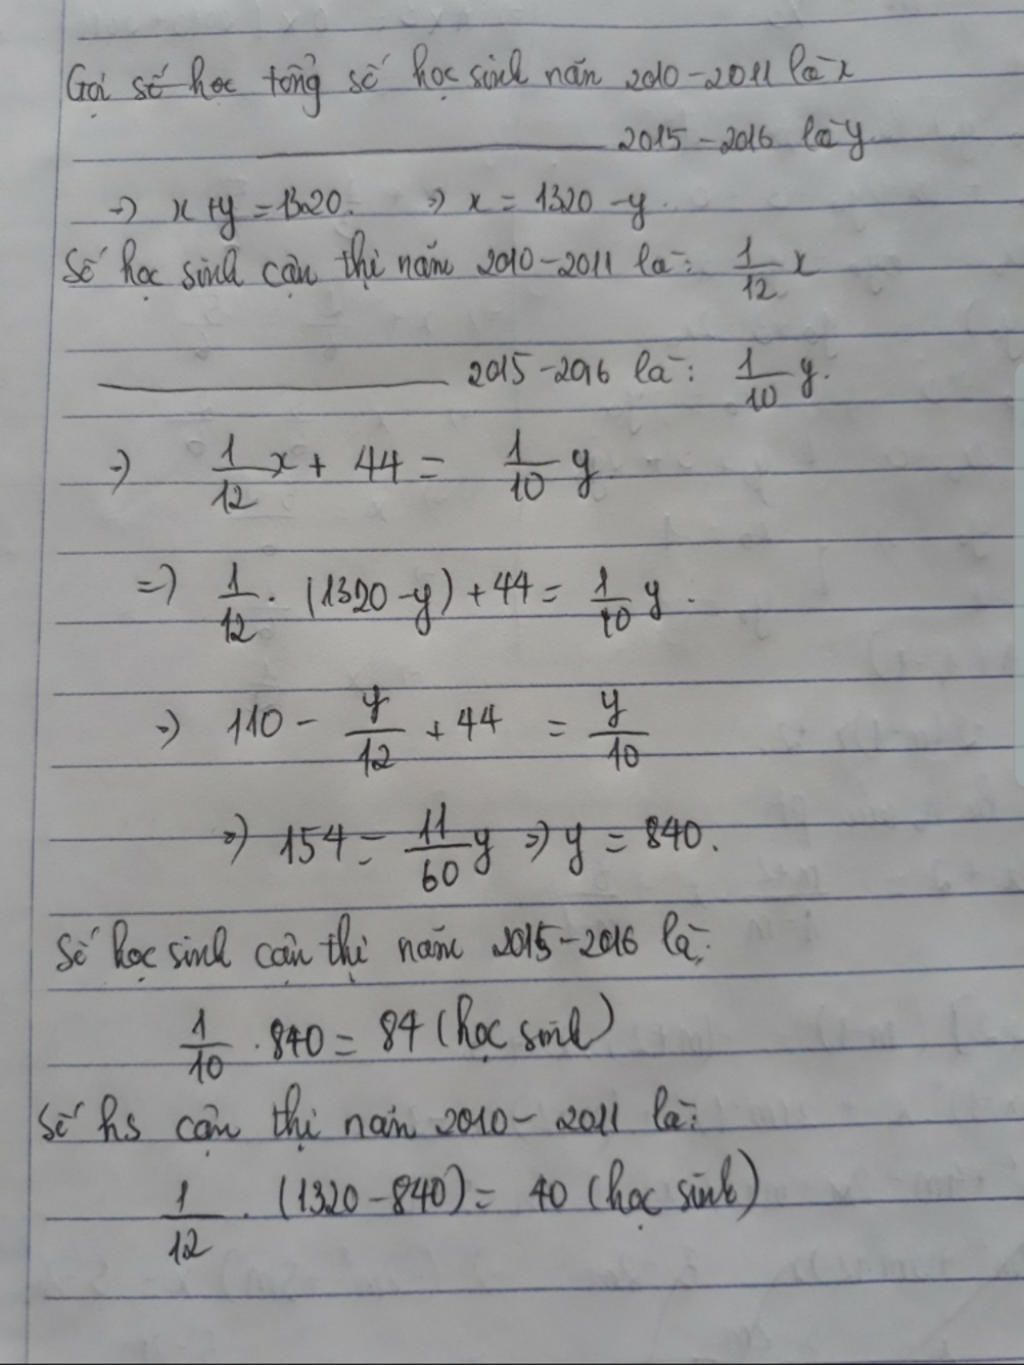 Gọi số học tổng số học sinh năm 2010-2011 là x
2015-2016 là y
=> x+y=1320. => x = 1320 -y.
Số học sinh cận thị năm 2010-2011 là: 1/12 x
2015-2016 là: 1/10 y.
=> 1/12 x + 44 = 1/10 y
=> 1/12 . (1320-y) +44 = 1/10 y.
=> 110 - y/12 + 44 = y/10
=> 154 = 11/60 y => y = 840.
Số học sinh cận thị năm 2015-2016 là:
1/10 . 840 = 84 (học sinh)
Số hs cận thị năm 2010-2011 là:
1/12 . (1320-840) = 40 (học sinh)